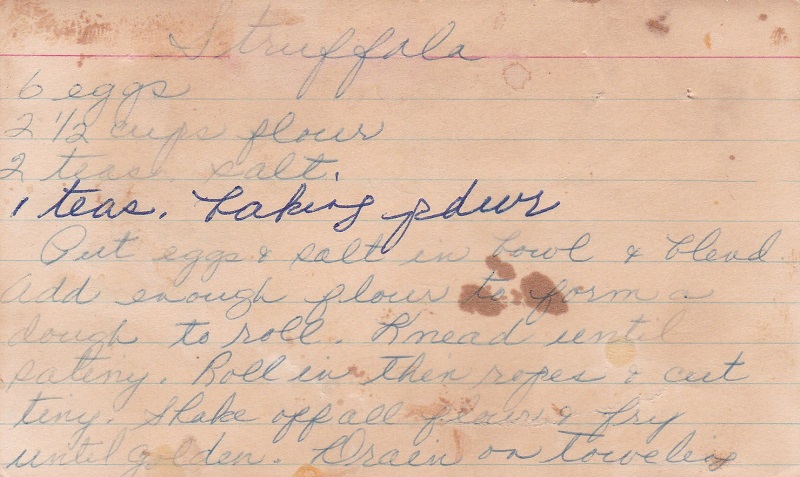 Struffola
6 eggs
2 1/2 cups flour
2 teas. salt.
1 teas. baking pdwr
Put eggs & salt in bowl & blend.
Add enough flour to form a
dough to roll. Knead until
satiny. Roll in then ropes & cut
tiny. Shake off all flour & fry
until golden. Drain on towels